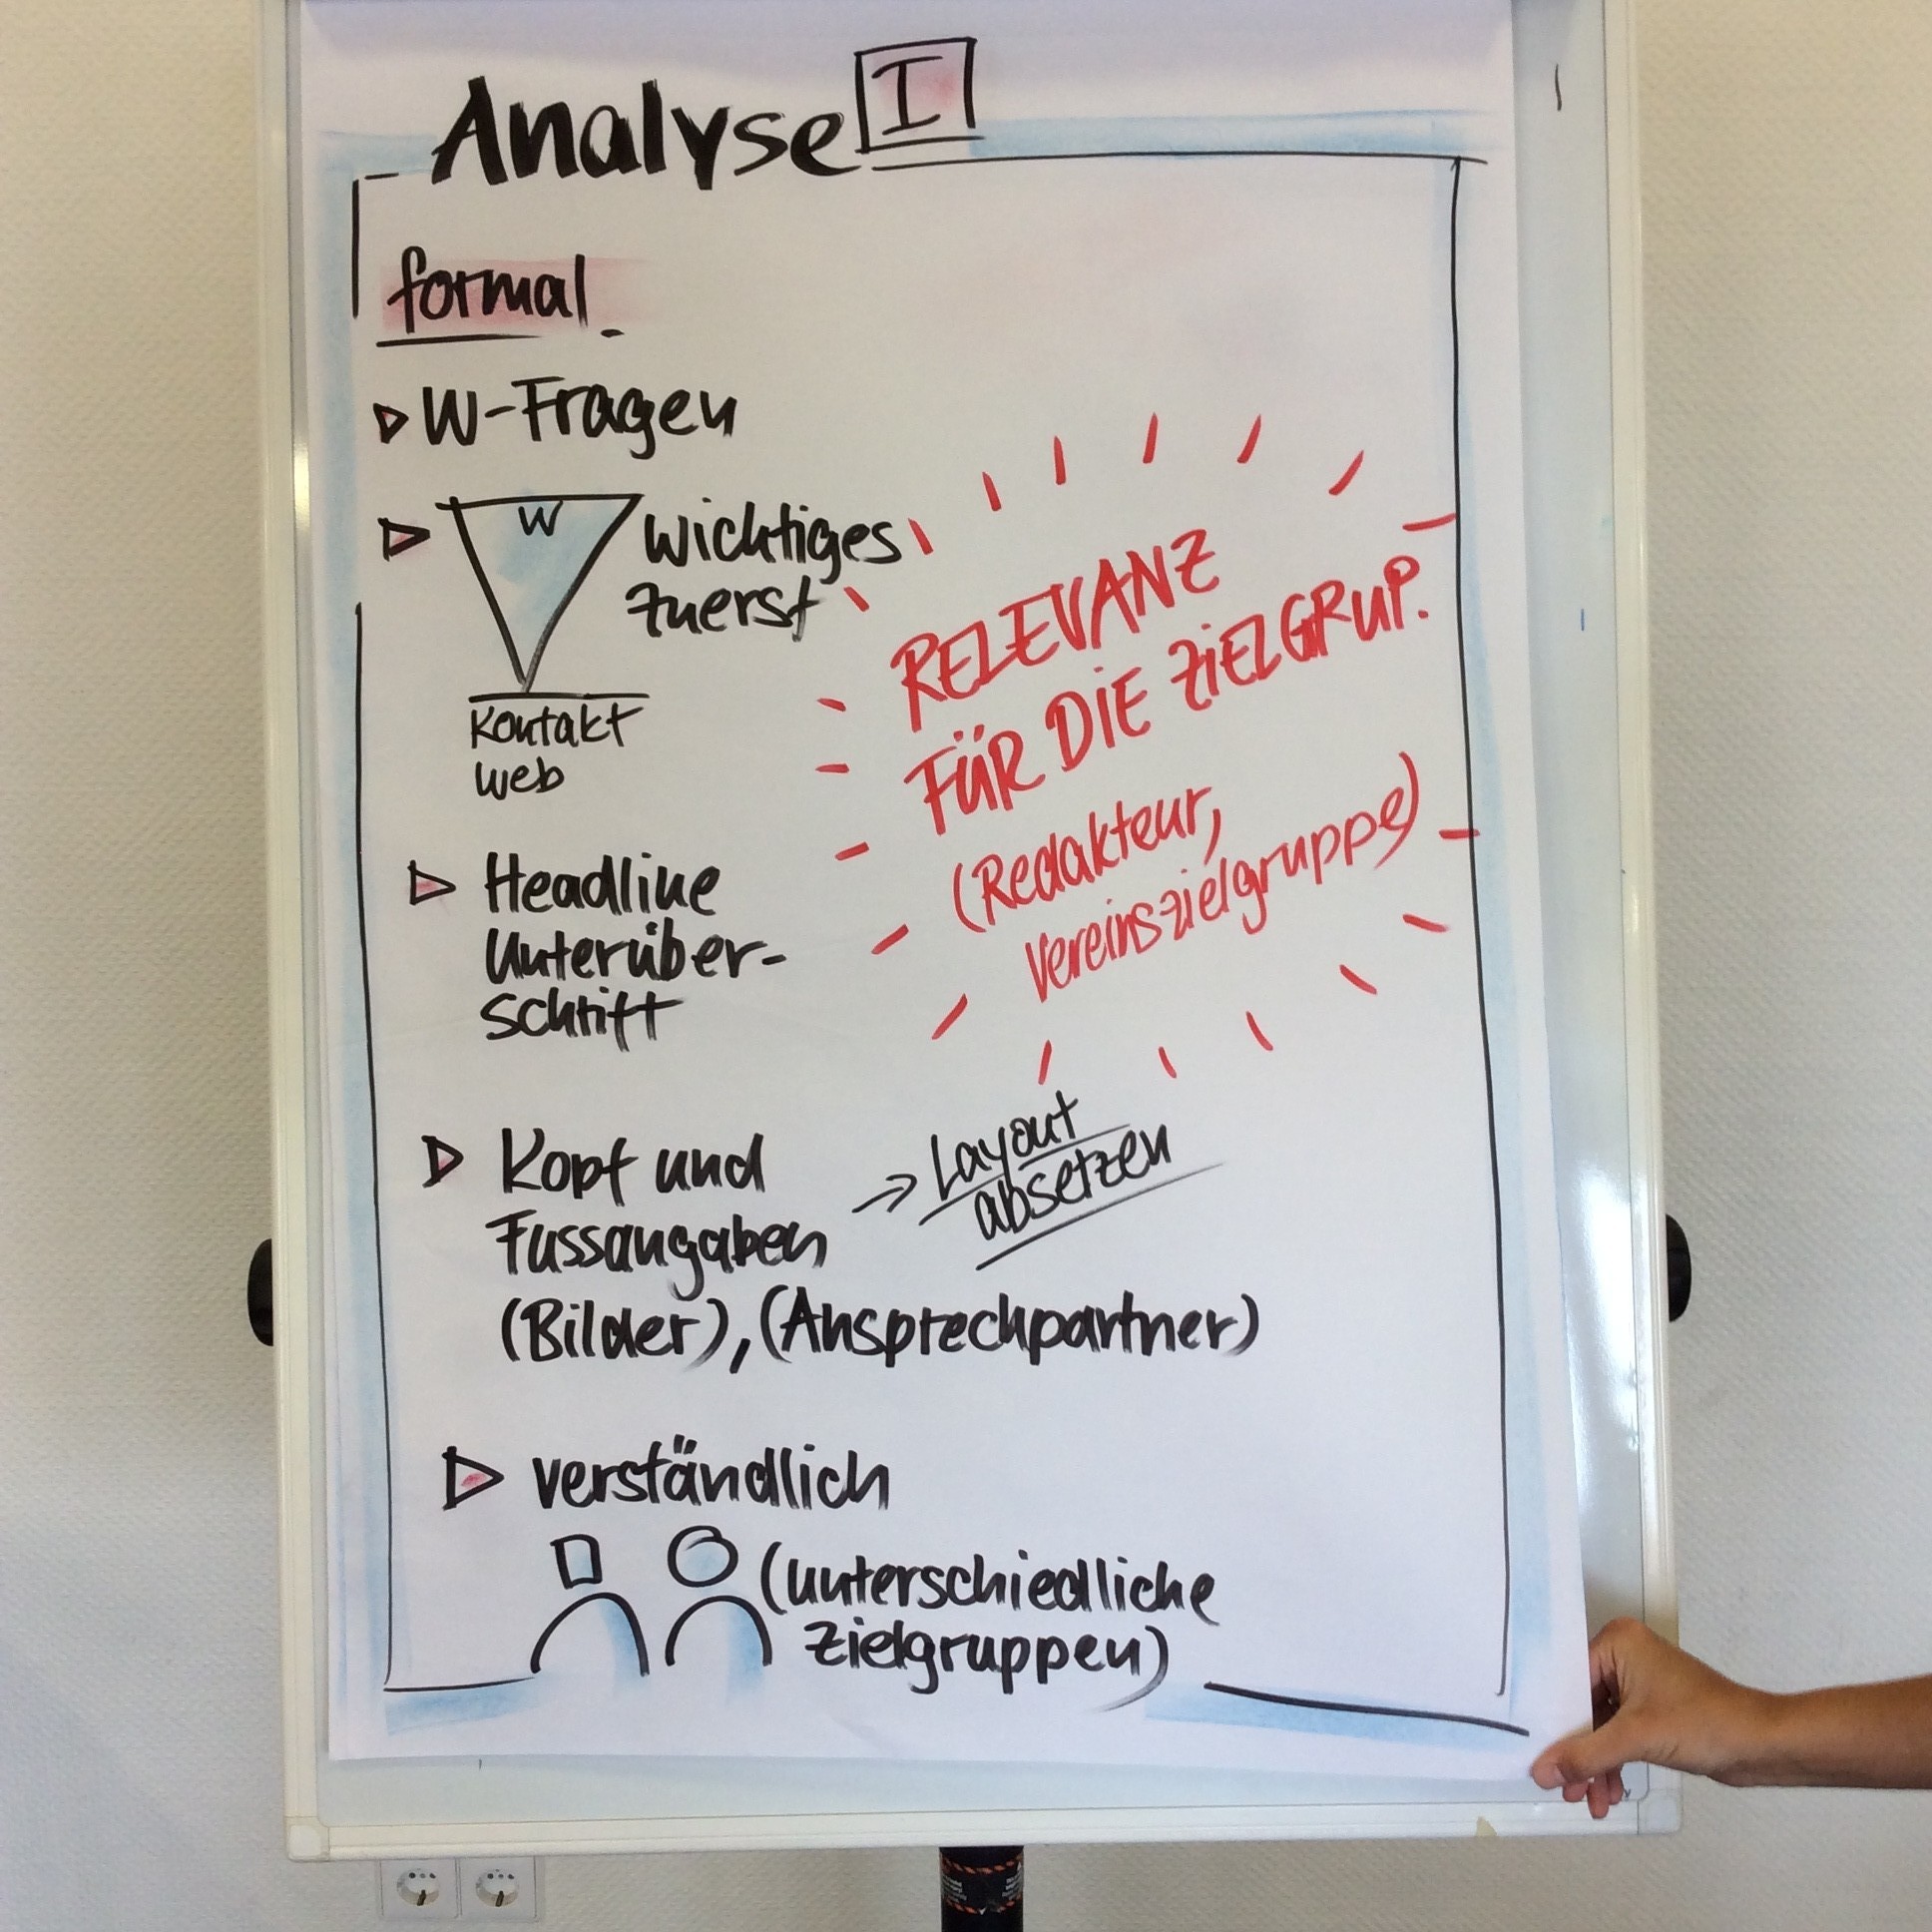 Analyse I
formal
W-Fragen
W
Wichtiges
zuerst
Kontakt
web
RELEVANZ
FÜR DIE ZIELGRUP.
(Redakteur,
Vereinszielgruppe)
Headline
Unterüber-
schrift
Kopf und
Fussangaben
→ Layout
absetzen
(Bilder), (Ansprechpartner)
verständlich
(unterschiedliche
Zielgruppen)